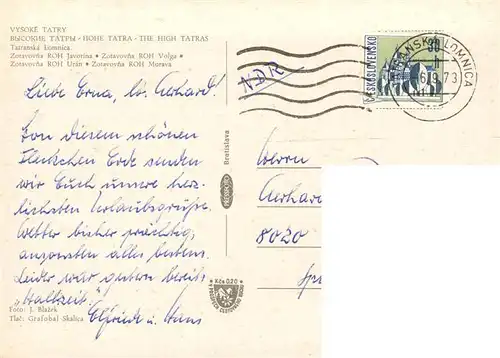 VYSOKÉ TATRY
ВЫСОКИЕ ТАТРЫ - HOHE TATRA - THE HIGH TATRAS
Tatranská Lomnica
Zotavovňa ROH Javorina • Zotavovňa ROH Volga •
Zotavovňa ROH Urán • Zotavovňa ROH Morava
Liebe Erna, lb. Gerhard!
Von diesem schönen
Fleckchen Erde senden
wir Euch unsere herz-
lichsten Urlaubsgrüße.
Wetter bisher prächtig,
ansonsten alles bestens.
Leider war gestern bereits
"Halbzeit."
Elfriede u. Hans
Foto: J. Blažek
Tlač: Grafobal Skalica
Bratislava
PRESSFOTO
Kčs 0,20
NDR
ČESKOSLOVENSKO
30
h
TATRANSKÁ LOMNICA
6.9.73
Herrn
Gerhar
8020